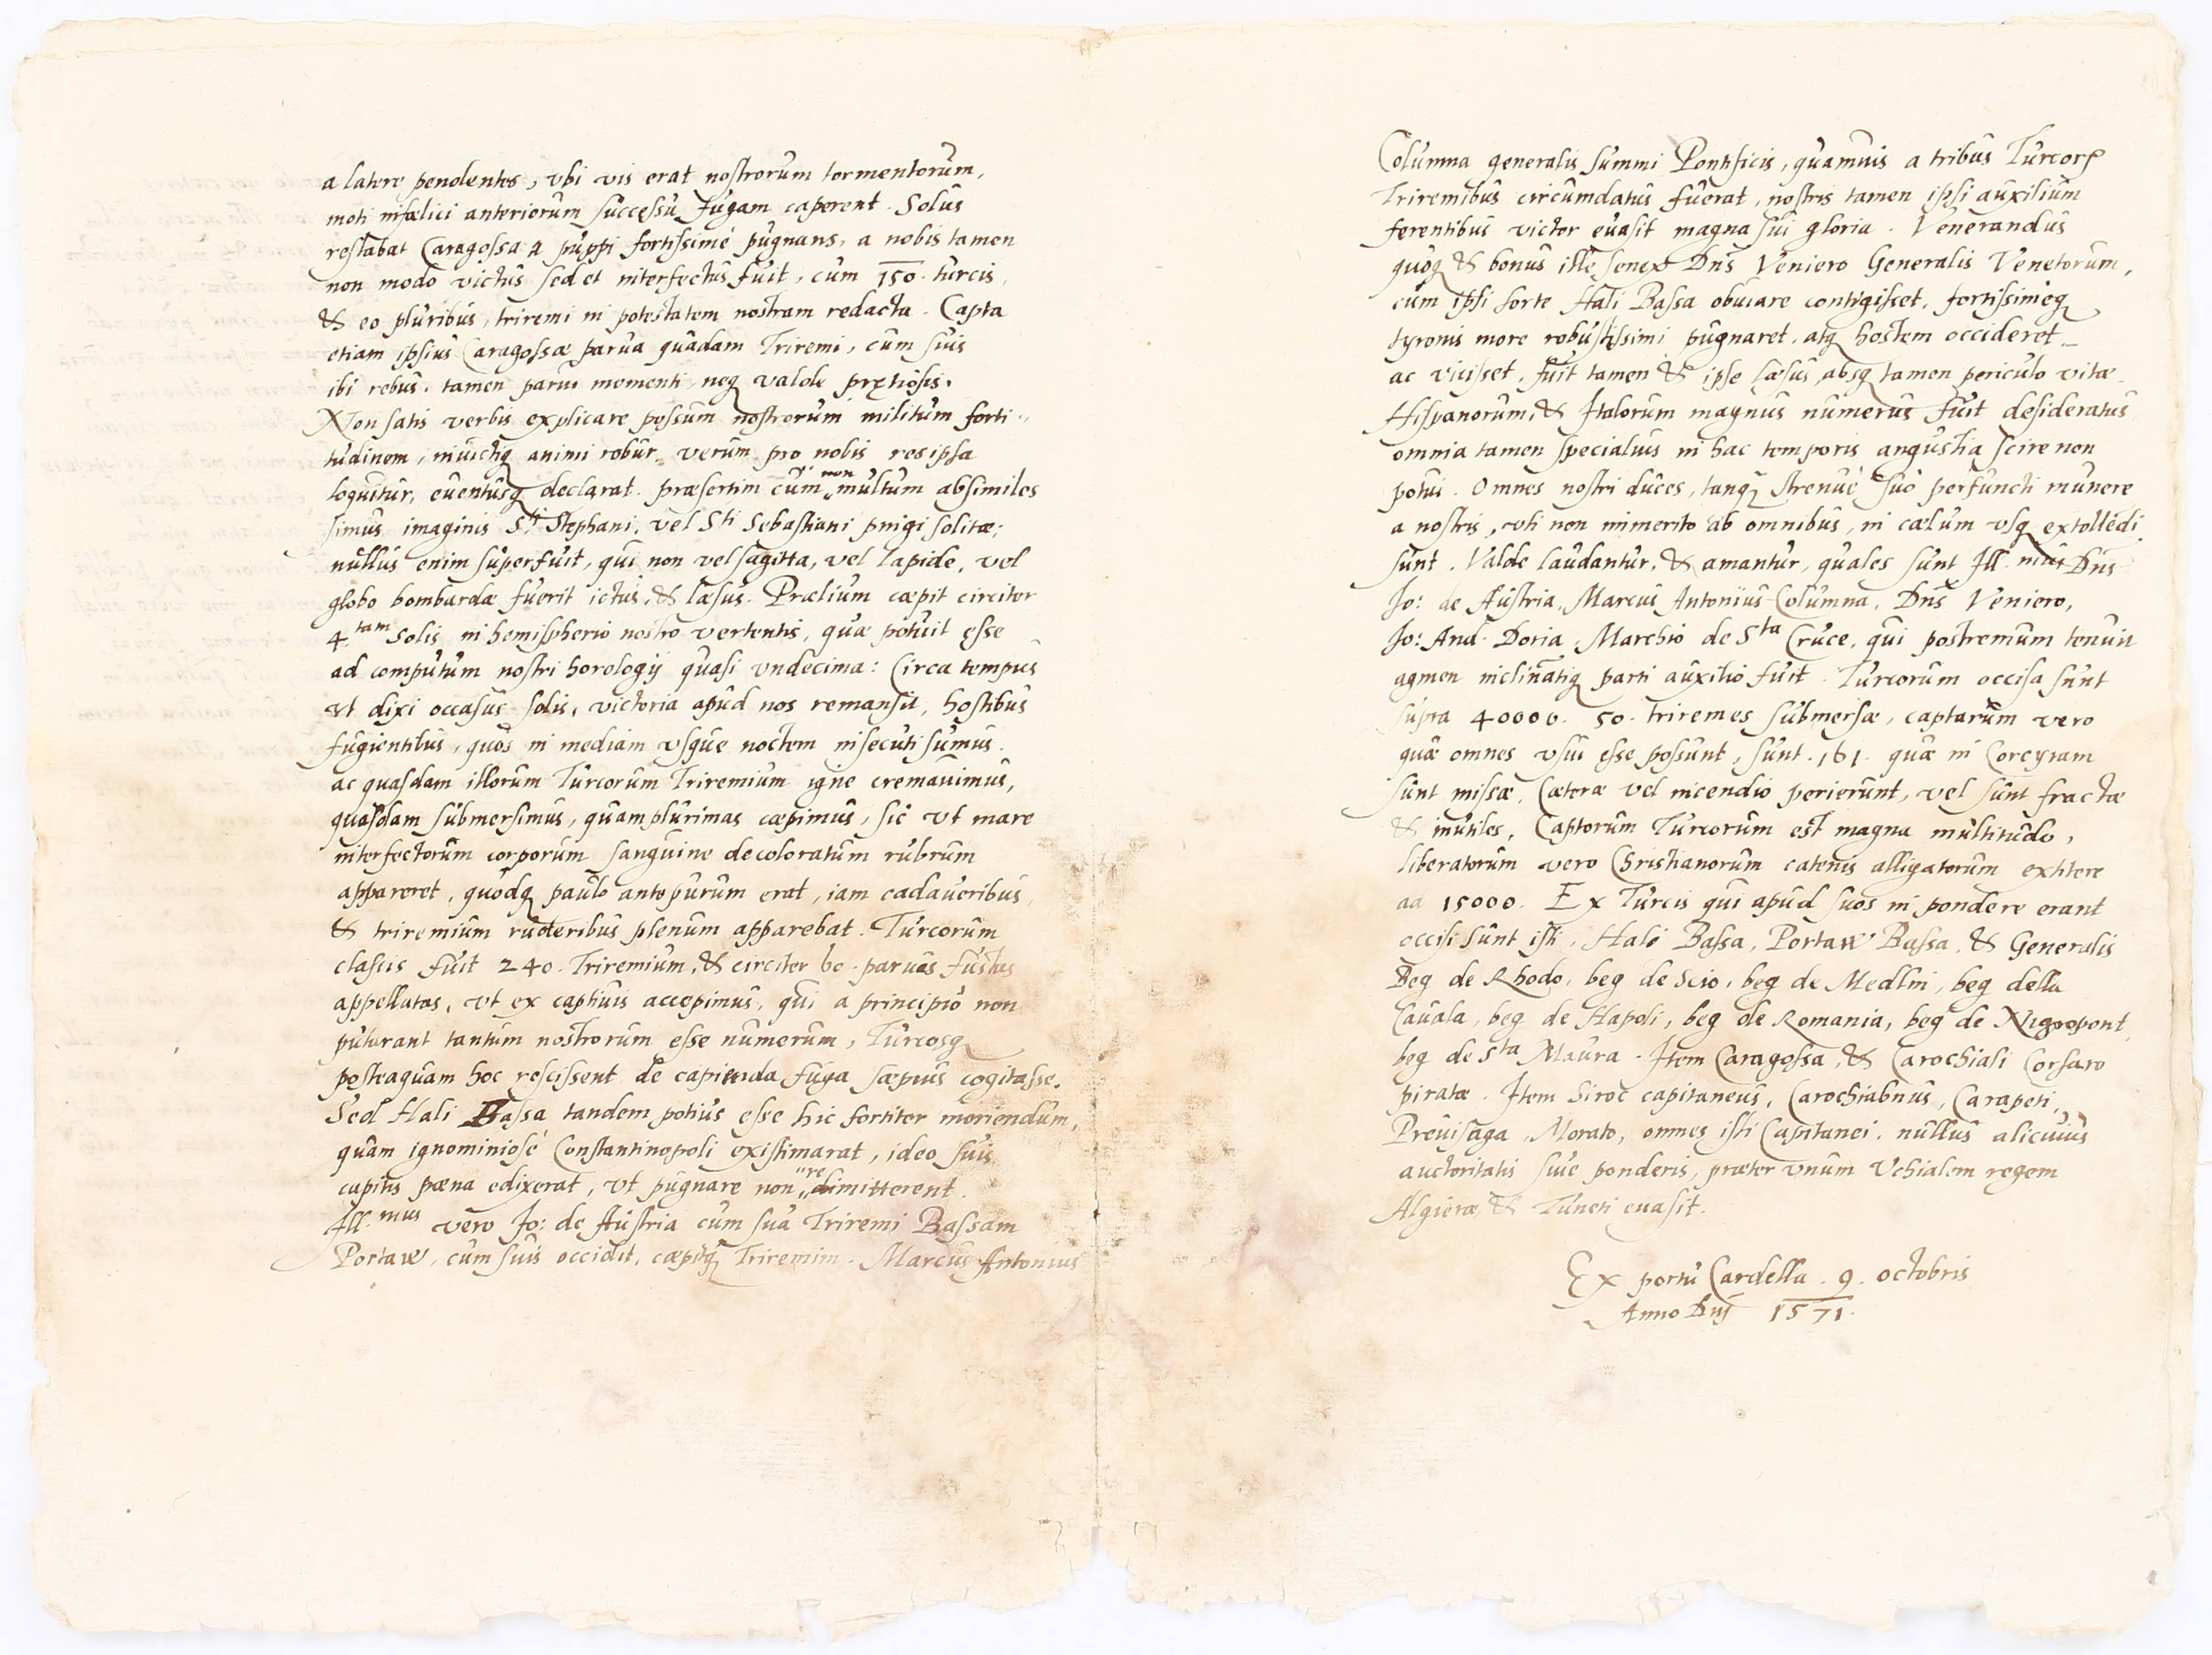 a latere pendentes, vbi vis erat nostrorum tormentorum,
moti infœlici anteriorum successu fugam caperent. Solus
restabat Caragossa a puppi fortissimé pugnans, a nobis tamen
non modo victus sed et interfectus fuit, cum 150. turcis,
& eo pluribus, triremi in potestatem nostram redacta. Capta
etiam ipsius Caragossæ parua quadam Triremi, cum suis
ibi rebus, tamen parui momenti, neq valde prętiosis.
Non satis verbis explicare possum nostrorum militum forti
tudinem, inuictiq animi robur, verum pro nobis res ipsa
loquitur, euentusq declarat. præsertim cum non multum absimiles
simus imaginis Sti Stephani, vel Sti Sebastiani pingi solitæ;
nullus enim superfuit, qui non vel sagitta, vel lapide, vel
globo bombardæ fuerit ictus, & læsus. Prælium cæpit circiter
4.tam solis in hemispherio nostro vertentis, quæ potuit esse
ad computum nostri horologij quasi vndecima: Circa tempus
vt dixi occasus solis, victoria apud nos remansit, hostibus
fugientibus, quos in mediam vsque noctem insecuti sumus.
ac quasdam illorum Turcorum Triremium igne cremauimus,
quasdam submersimus, quamplurimas cæpimus, sic vt mare
interfectorum corporum sanguine decoloratum rubrum
appareret, quodq paulo ante purum erat, iam cadaueribus,
& triremium ructeribus plenum apparebat. Turcorum
classis fuit 240. Triremium, & circiter 60. paruas fustas
appellatas, vt ex captiuis accepimus, qui a principio non
putarant tantum nostrorum esse numerum, Turcosq
posteaquam hoc rescissent de capienda fuga sæpius cogitasse.
Sed Hali Bassa tandem potius esse hic fortiter moriendum,
quam ignominiosé Constantinopoli existimarat, ideo suis
capitis pœna edixerat, vt pugnare non dimitterent.
Ill.mus vero Jo: de Austria cum sua Triremi Bassam
Portaw, cum suis occidit, cæpitq Triremim. Marcus Antonius
Columna generalis summi Pontificis, quamuis a tribus Turcorum
Triremibus circumdatus fuerat, nostris tamen ipsi auxilium
ferentibus victor euasit magna sui gloria. Venerandus
quoq & bonus ille senex Dns Veniero Generalis Venetorum,
cum ipsi forte Hali Bassa obuiare contigisset, fortissimeq
tyronis more robustissimi pugnaret, atq hostem occideret
ac vicisset, fuit tamen & ipse læsus, absq tamen periculo vitæ.
Hispanorum, & Italorum magnus numerus fuit desideratus
omnia tamen specialius in hac temporis angustia scire non
potui. Omnes nostri duces, tanq strenué suo perfuncti munere
a nostris, vti non immerito ab omnibus, in cælum vsq extollēdi
sunt. Valde laudantur, & amantur, quales sunt Ill.mus Dns
Jo: de Austria, Marcus Antonius Columna, Dns Veniero,
Jo: And. Doria, Marchio de Sta Cruce, qui postremum tenuit
agmen inclinatiq parti auxilio fuit. Turcorum occisa sunt
supra 40000. 50. triremes submersæ, captarum vero
quæ omnes vsui esse possunt, sunt .161. quæ in Corcyram
sunt missæ. Cæteræ vel incendio perierunt, vel sunt fractæ
& inutiles, Captorum Turcorum est magna multitudo,
liberatorum vero Christianorum catenis alligatorum extitere
ad 15000. Ex Turcis qui apud suos in pondere erant
occisi sunt isti, Hali Bassa, Portaw Bassa, & Generalis
Beg de Rhodo, beg de Scio, beg de Medlin, beg della
Cauala, beg de Hapoli, beg de Romania, beg de Nigropont,
beg de Sta Maura. Item Caragossa, & Carochiali Corsaro
piratæ. Item Siroc capitaneus, Carochiabnus, Carapeti,
Preuisaga, Morato, omnes isti Capitanei. nullus alicuius
auctoritatis siue ponderis, præter vnum Vchialem regem
Algieræ, & Tuneti euasit.
Ex portu Cardella. 9. octobris
Anno Dnj 1571.